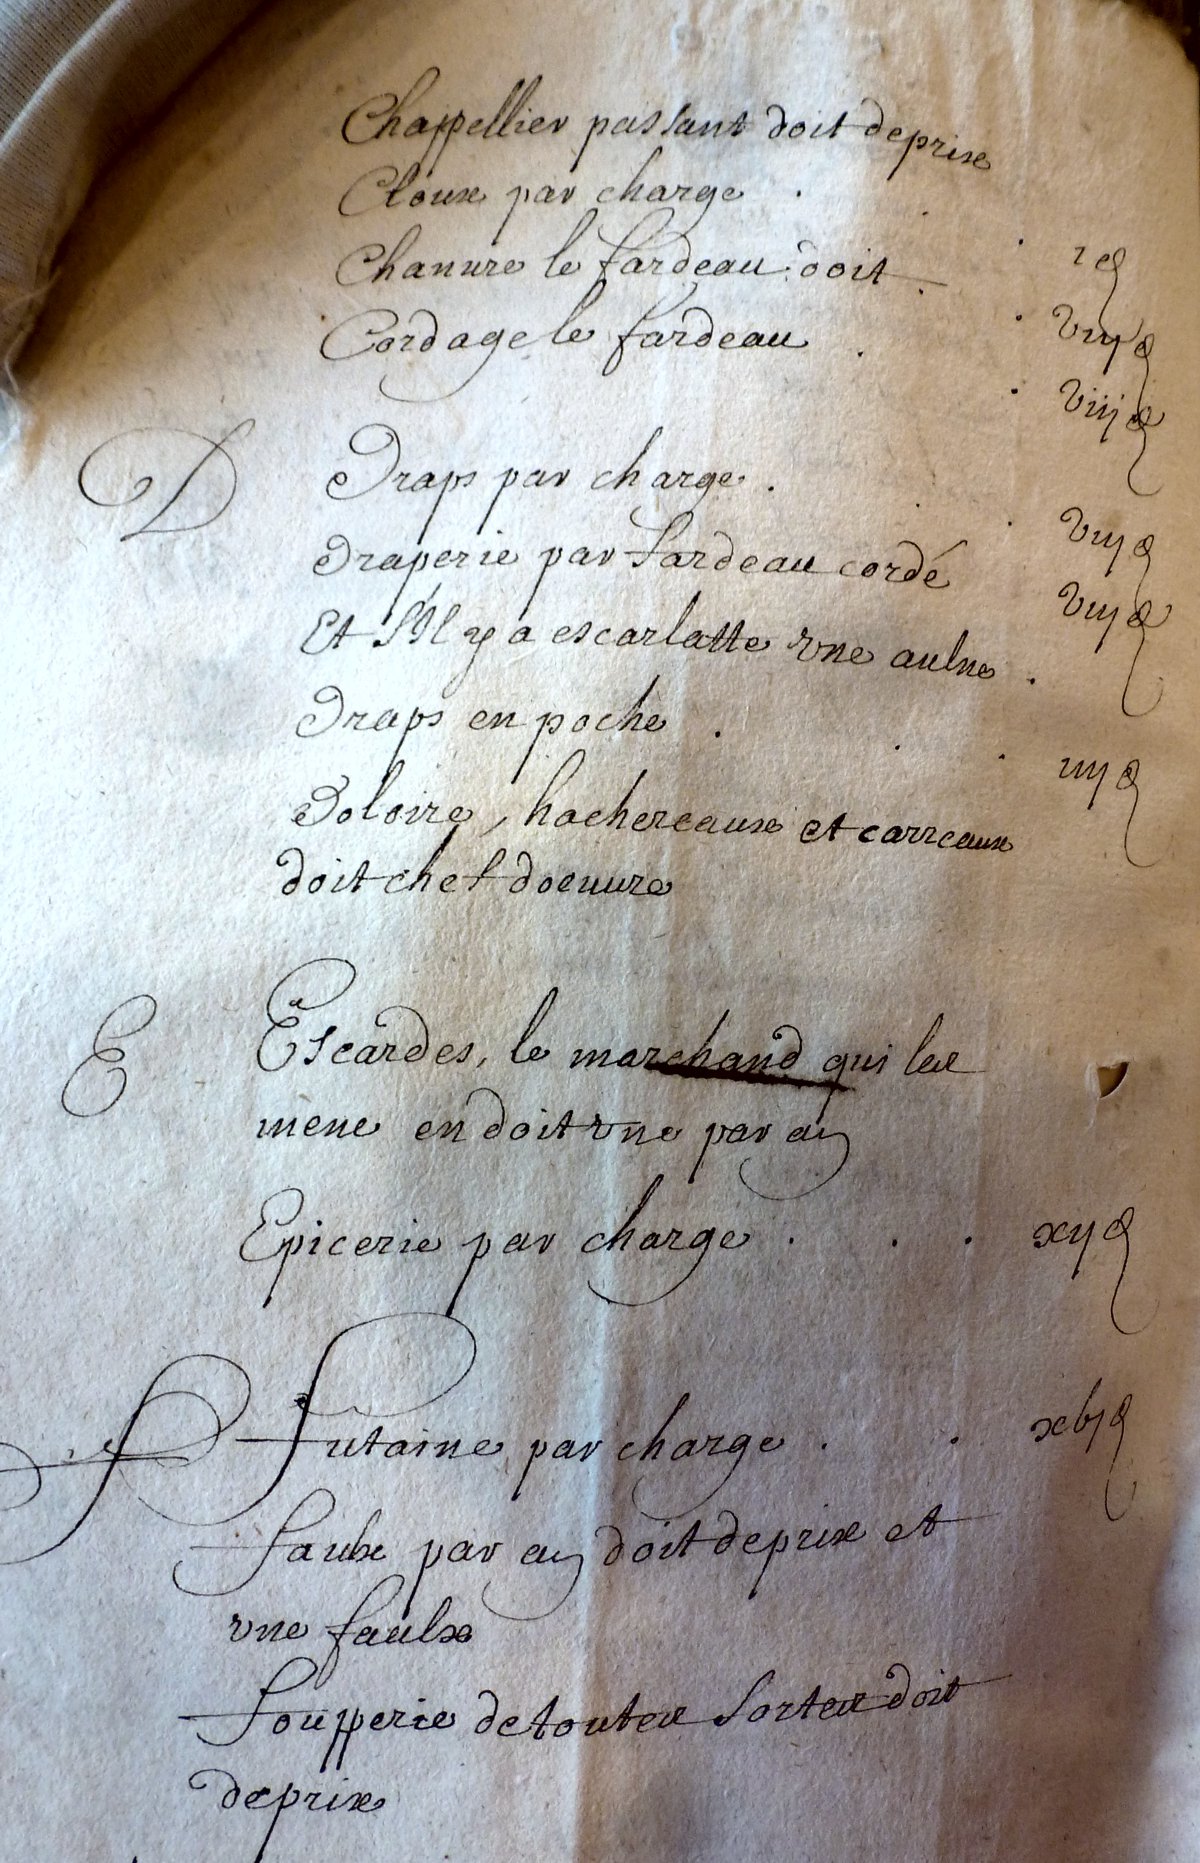 Chappellier passant doit deprix
Cloux par charge . . . 1 d
Chanure le fardeau doit . . viij d
Cordage le fardeau . . viij d
D Draps par charge . . . viij d
Draperie par fardeau cordé viij d
Et s'Il y a escarlatte vne aulne .
Draps en poche . . . iiij d
Doloire, hachereaux et carreaux
doit chef doeuure
E Escardes, le marchand qui les
mene en doit vne par an
Epicerie par charge . . . xij d
F Futaine par charge . . xvj d
Faulx par an doit deprix et
vne faulx
Foupperie de toutes sortes doit
deprix